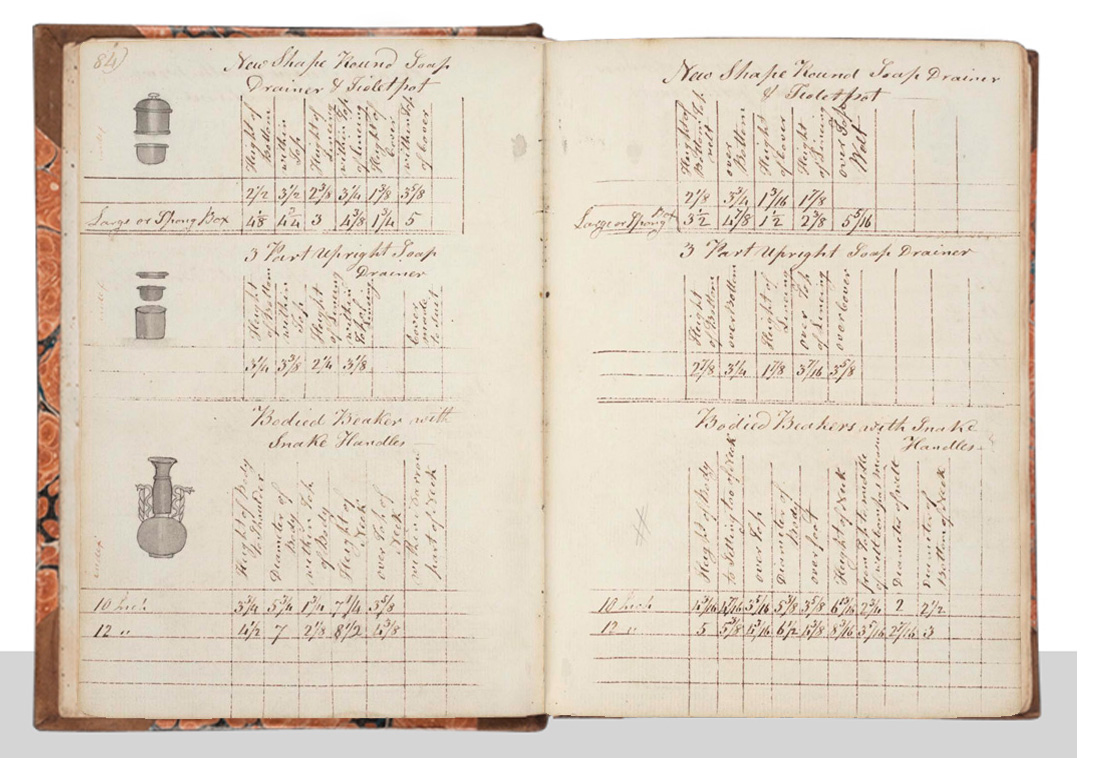 84)
New Shape Round Soap
Drainer & Violetpot
Height of Bottom
within Top
Height of Lineing
within Top of Lineing
Height of Cover
within Top of Cover
2 1/2 3 1/2 2 3/8 3 1/4 1 3/8 3 5/8
Large or Spong Box 4 1/8 3 4 3/8 1 3/4 5
3 Part Upright Soap
Drainer
Height of Bottom
within Top
Height of Lineing
within Top of Lineing
Cover made to suit
3 1/4 3 3/8 2 1/4 3 1/8
Bodied Beaker with
Snake Handles
index
Height of Body to Shoulder
Diameter of Body
within Top of Body
Height of Neck
over Top of Neck
within narrow part of Neck
10 Inch 3 3/4 5 3/4 1 3/4 7 1/4 3 5/8
12 " 4 1/2 7 2 1/8 8 1/2 4 3/8
New Shape Round Soap Drainer
& Violetpot
Height of Bottom wet
over Bottom
Height of Cover
Height of Lineing
over Top Wet
2 7/8 3 3/4 1 3/16 1 7/8
Large or Spong Box 3 1/2 4 7/8 1 1/2 2 3/8 5 5/16
3 Part Upright Soap Drainer
Height of Bottom
over Bottom
Height of Lineing
over Top of Lineing
over Cover
2 7/8 3 3/4 1 7/8 3 7/16 3 5/8
Bodied Beakers with Snake
Handles
Height of Body
to Setting too of Neck
over Top
Diameter of Body
over foot
Height of Neck
Diameter of swell
Diameter of Bottom of Neck
10 Inch 5 3/8 3 5/8 6 3/16 2 3/4 2 2 1/2
12 " 5 5 3/8 6 1/2 4 3/8 8 3/16 3 2 7/16 3